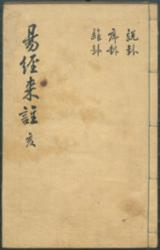 易經來註 亥
說卦
序卦
雜卦